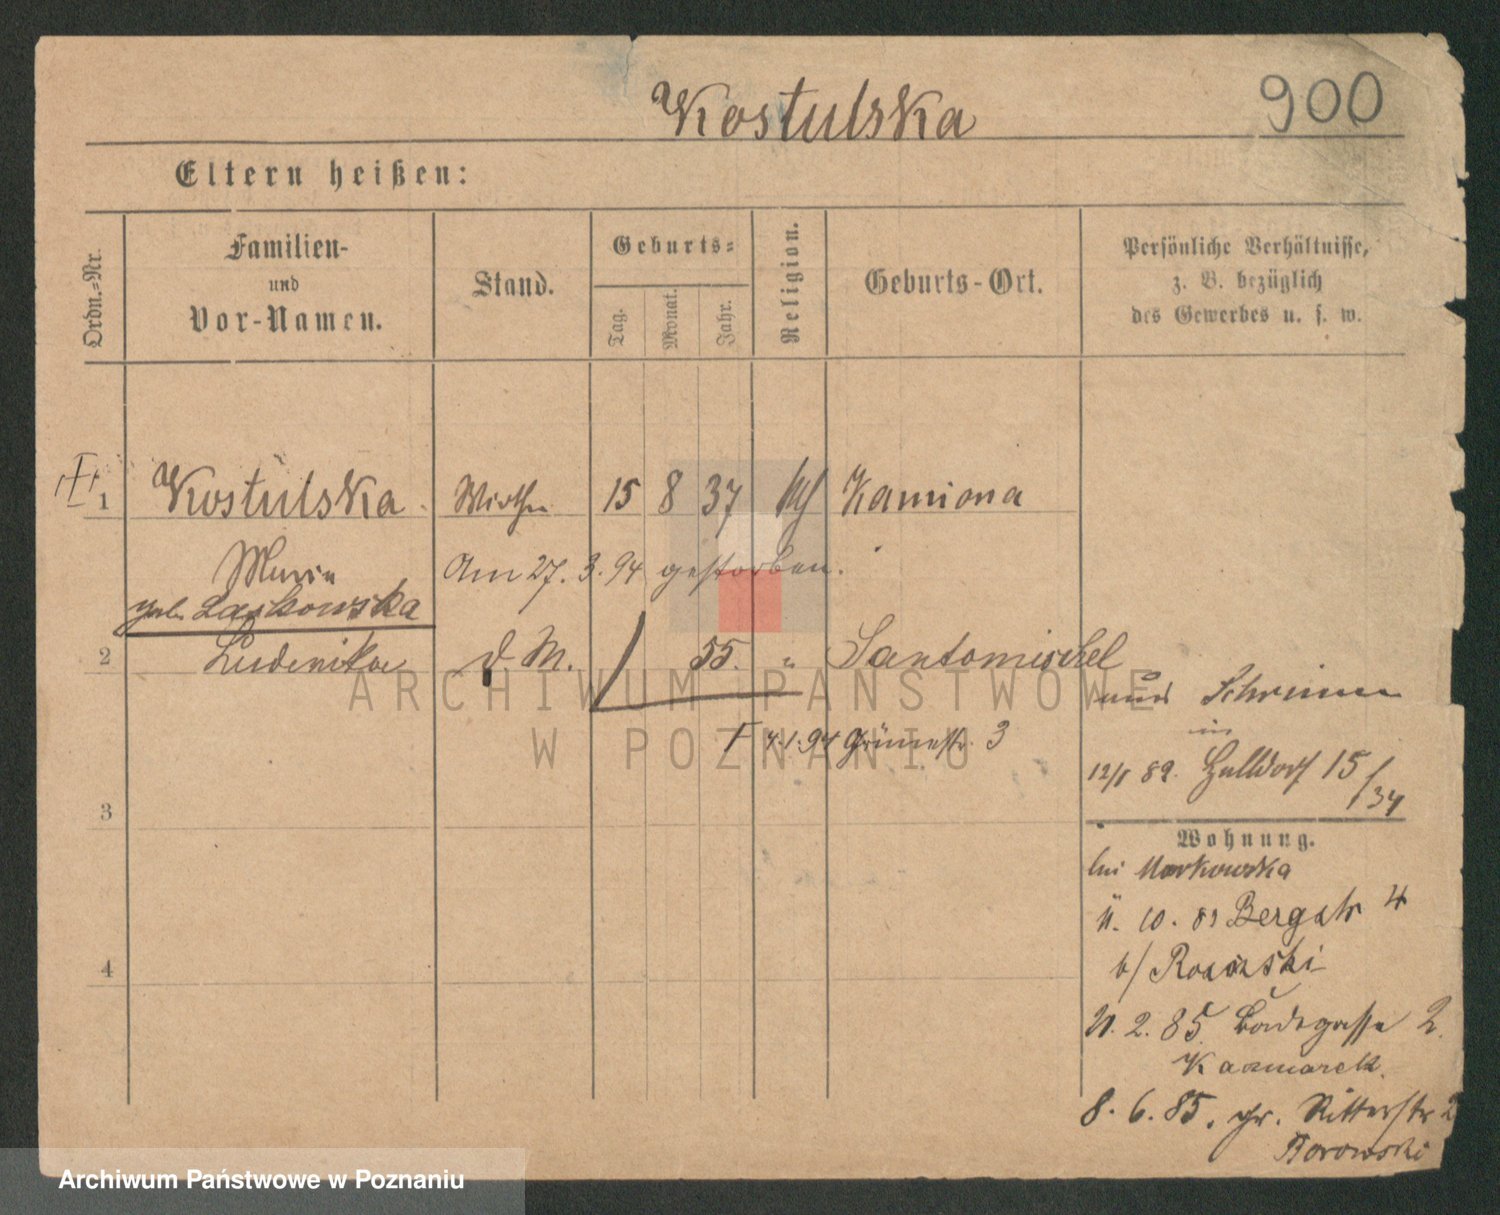 Kostulska
900
Eltern heißen:
Ordn.-Nr.
Familien-
und
Vor-Namen.
Stand.
Geburts-
Tag.
Monat.
Jahr.
Religion.
Geburts-Ort.
Persönliche Verhältnisse,
z. B. bezüglich
des Gewerbes u. s. w.
1 Kostulska Wirthin 15 8 37 Kamiona
Maria
Am 27. 3. 94 gestorben.
geb. Laskowska
2 Ludovika d. M. 55. " Santomischel
und Schrimm
in
4.1.94 Grünestr. 3
12/1 82. 15
/34
3
Wohnung.
bei Markowska
10. 83 Bergstr 4
b/
4
11. 2. 85. 2.
Kazmarek.
8. 6. 85. gr. Ritterstr 2
Borowski
ARCHIWUM PAŃSTWOWE
W POZNANIU
Archiwum Państwowe w Poznaniu